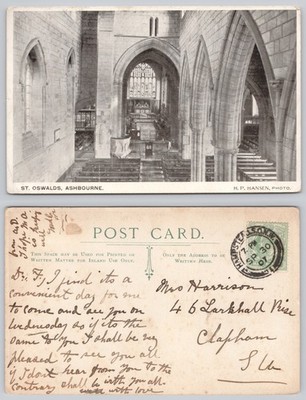 ST. OSWALDS, ASHBOURNE.
H. P. HANSEN, PHOTO.
POST CARD.
THIS SPACE MAY BE USED FOR PRINTED OR WRITTEN MATTER FOR INLAND USE ONLY.
ONLY THE ADDRESS TO BE WRITTEN HERE.
from
I hope
is pretty
well
Dr F, I find its a
convenient day for me
to come and see you on
Wednesday as if its the
same to you I shall be very
pleased to see you all
if I dont hear from you to the
contrary shall be with you all.
with love
Mrs Harrison
46 Larkhall Rise
Clapham
S W